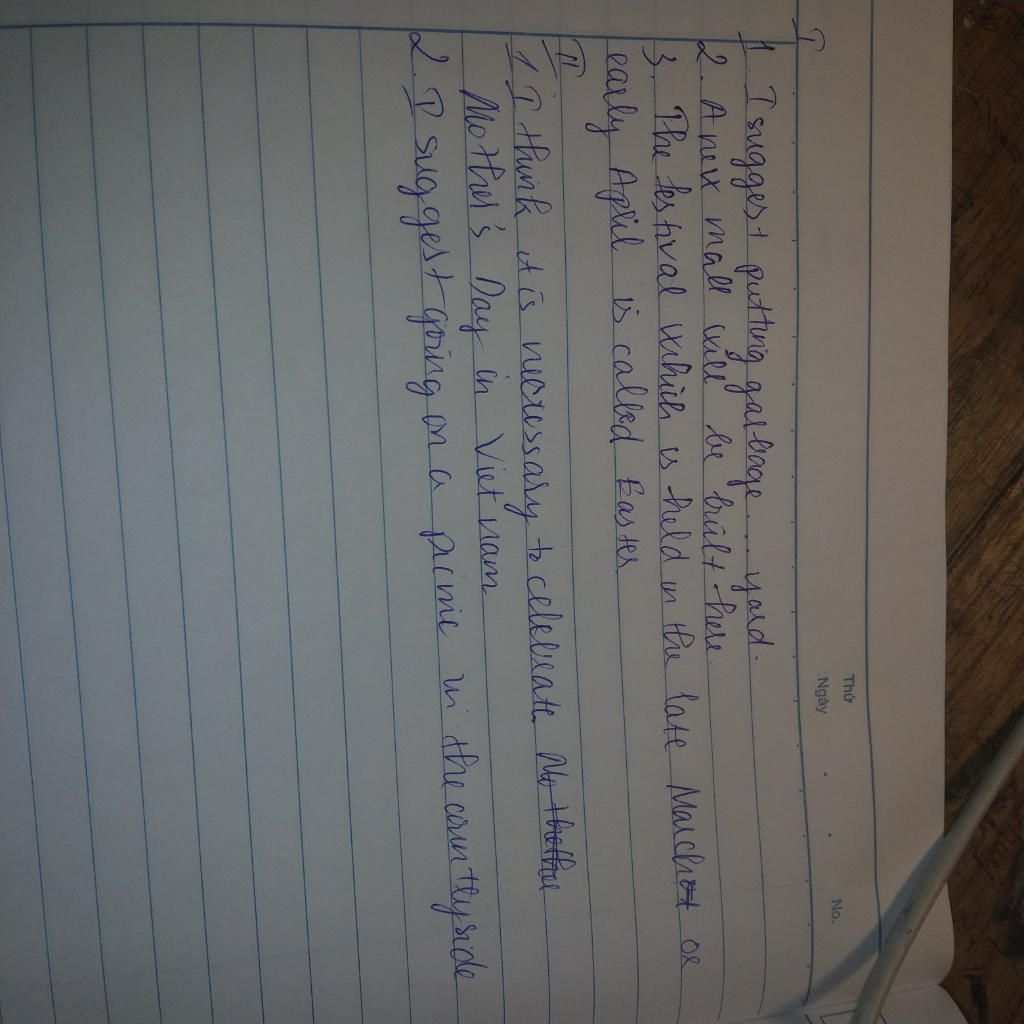 Thứ
Ngày
No.
I
1. I suggest putting garbage .... yard.
2. A new mall will be built here.
3. The festival which is held in the late March or
early April is called Easter
II
1 I think it is necessary to celebrate
Mother's Day in Viet nam
2. I suggest going on a picnic in the countryside